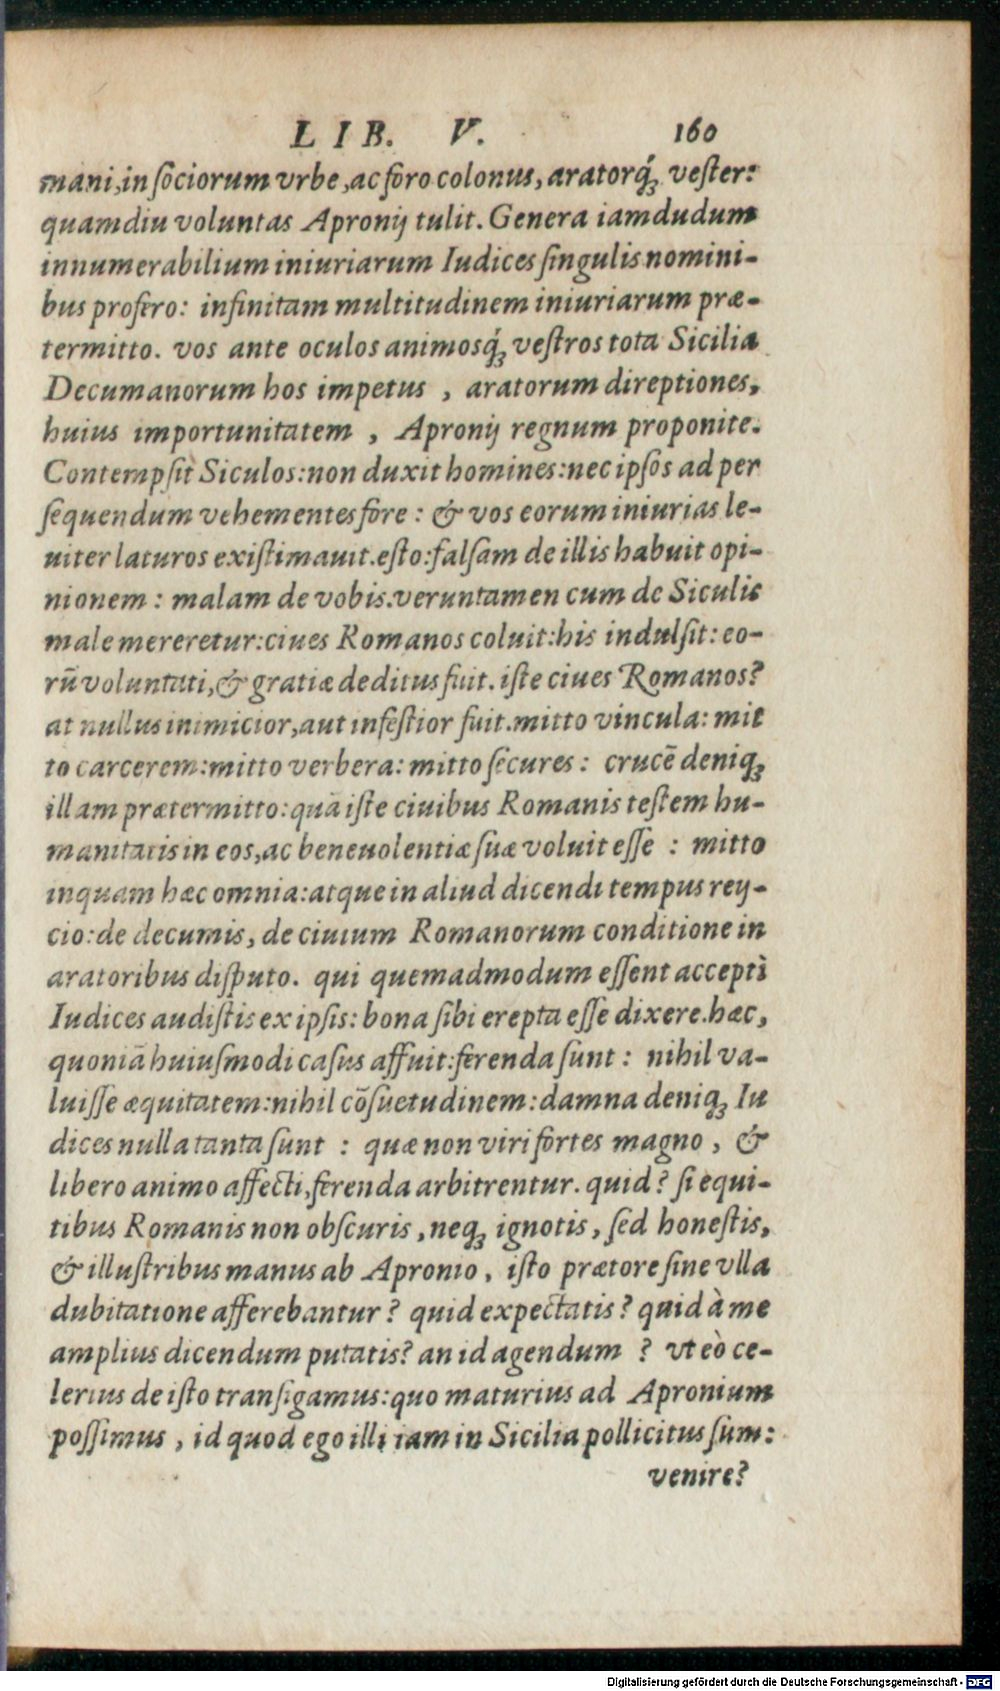 LIB. V. 160
mani, in sociorum vrbe, ac foro colonus, aratorq́ꝫ vester:
quamdiu voluntas Apronij tulit. Genera iamdudum
innumerabilium iniuriarum Iudices singulis nomini-
bus profero: infinitam multitudinem iniuriarum præ-
termitto. vos ante oculos animosq́ꝫ vestros tota Sicilia
Decumanorum hos impetus , aratorum direptiones,
huius importunitatem , Apronij regnum proponite.
Contempsit Siculos: non duxit homines: nec ipsos ad per
sequendum vehementes fore : & vos eorum iniurias le-
uiter laturos existimauit. esto: falsam de illis habuit opi-
nionem : malam de vobis. veruntamen cum de Siculis
male mereretur: ciues Romanos coluit: his indulsit: eo-
rū voluntati, & gratiæ deditus fuit. iste ciues Romanos?
at nullus inimicior, aut infestior fuit. mitto vincula: mit
to carcerem: mitto verbera: mitto secures : crucē deniqꝫ
illam prætermitto: quā iste ciuibus Romanis testem hu-
manitatis in eos, ac beneuolentiæ suæ voluit esse : mitto
inquam hæc omnia: atque in aliud dicendi tempus reij-
cio: de decumis, de ciuium Romanorum conditione in
aratoribus disputo. qui quemadmodum essent accepti
Iudices audistis ex ipsis: bona sibi erepta esse dixere. hæc,
quoniā huiusmodi casus affuit: ferenda sunt : nihil va-
luisse æquitatem: nihil cōsuetudinem: damna deniqꝫ Iu
dices nulla tanta sunt : quæ non viri fortes magno , &
libero animo affecti, ferenda arbitrentur. quid? si equi-
tibus Romanis non obscuris, neqꝫ ignotis, sed honestis,
& illustribus manus ab Apronio, isto prætore sine vlla
dubitatione afferebantur? quid expectatis? quid à me
amplius dicendum putatis? an id agendum ? vt eò ce-
lerius de isto transigamus: quo maturius ad Apronium
possimus , id quod ego illi iam in Sicilia pollicitus sum:
venire?
Digitalisierung gefördert durch die Deutsche Forschungsgemeinschaft - DFG